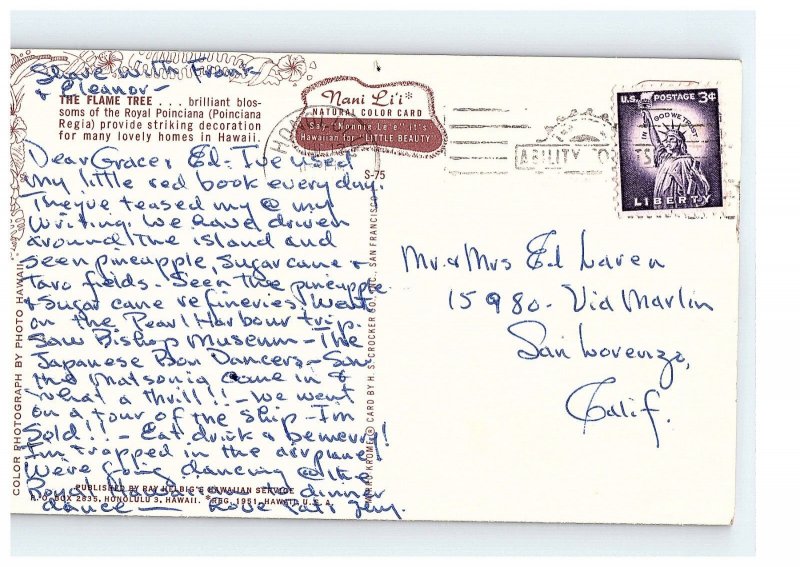 Share with Frank
& Eleanor-
THE FLAME TREE . . . brilliant blos-
soms of the Royal Poinciana (Poinciana
Regia) provide striking decoration
for many lovely homes in Hawaii.
Nani Li'i*
NATURAL COLOR CARD
Say "Nonnie Lee'e" it's
Hawaiian for "LITTLE BEAUTY"
S-75
U.S. POSTAGE 3¢
IN GOD WE TRUST
LIBERTY
Dear Grace & Ed- I've used
my little red book every day.
They've teased my @ my
writing. We have driven
around the island and
seen pineapple, sugar cane +
taro fields. Seen the pineapple
& sugar cane refineries. Went
on the Pearl Harbour trip.
Saw Bishop Museum - The
Japanese Bon Dancers - Saw
the Matsonia come in &
what a thrill!! - we went
on a tour of the ship - I'm
Sold!! - Eat, drink &
I'm trapped in the airplane!
We're going dancing @ the
Royal Hawaiian dinner
dance -
PUBLISHED BY RAY HELBIG'S HAWAIIAN SERVICE
P. O. BOX 2835, HONOLULU 3, HAWAII. *REG. 1951, HAWAII, U.S.A.
COLOR PHOTOGRAPH BY PHOTO HAWAII
KROME® CARD BY H. S. CROCKER CO., INC., SAN FRANCISCO
Mr. & Mrs Ed Laven
15980 - Via Marlin
San Lorenzo,
Calif.